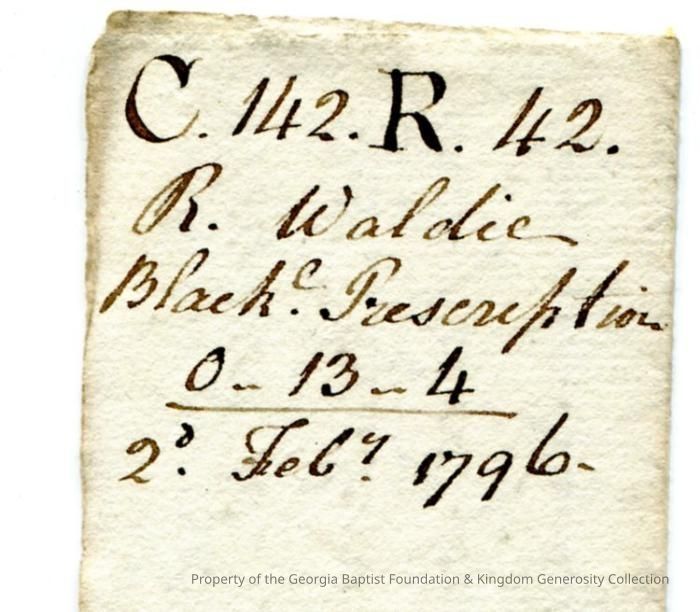 C. 142. R. 42.
R. Waldie
Blackᵉ. Prescription
0 - 13 - 4
2ᵈ. Febʸ. 1796-
Property of the Georgia Baptist Foundation & Kingdom Generosity Collection